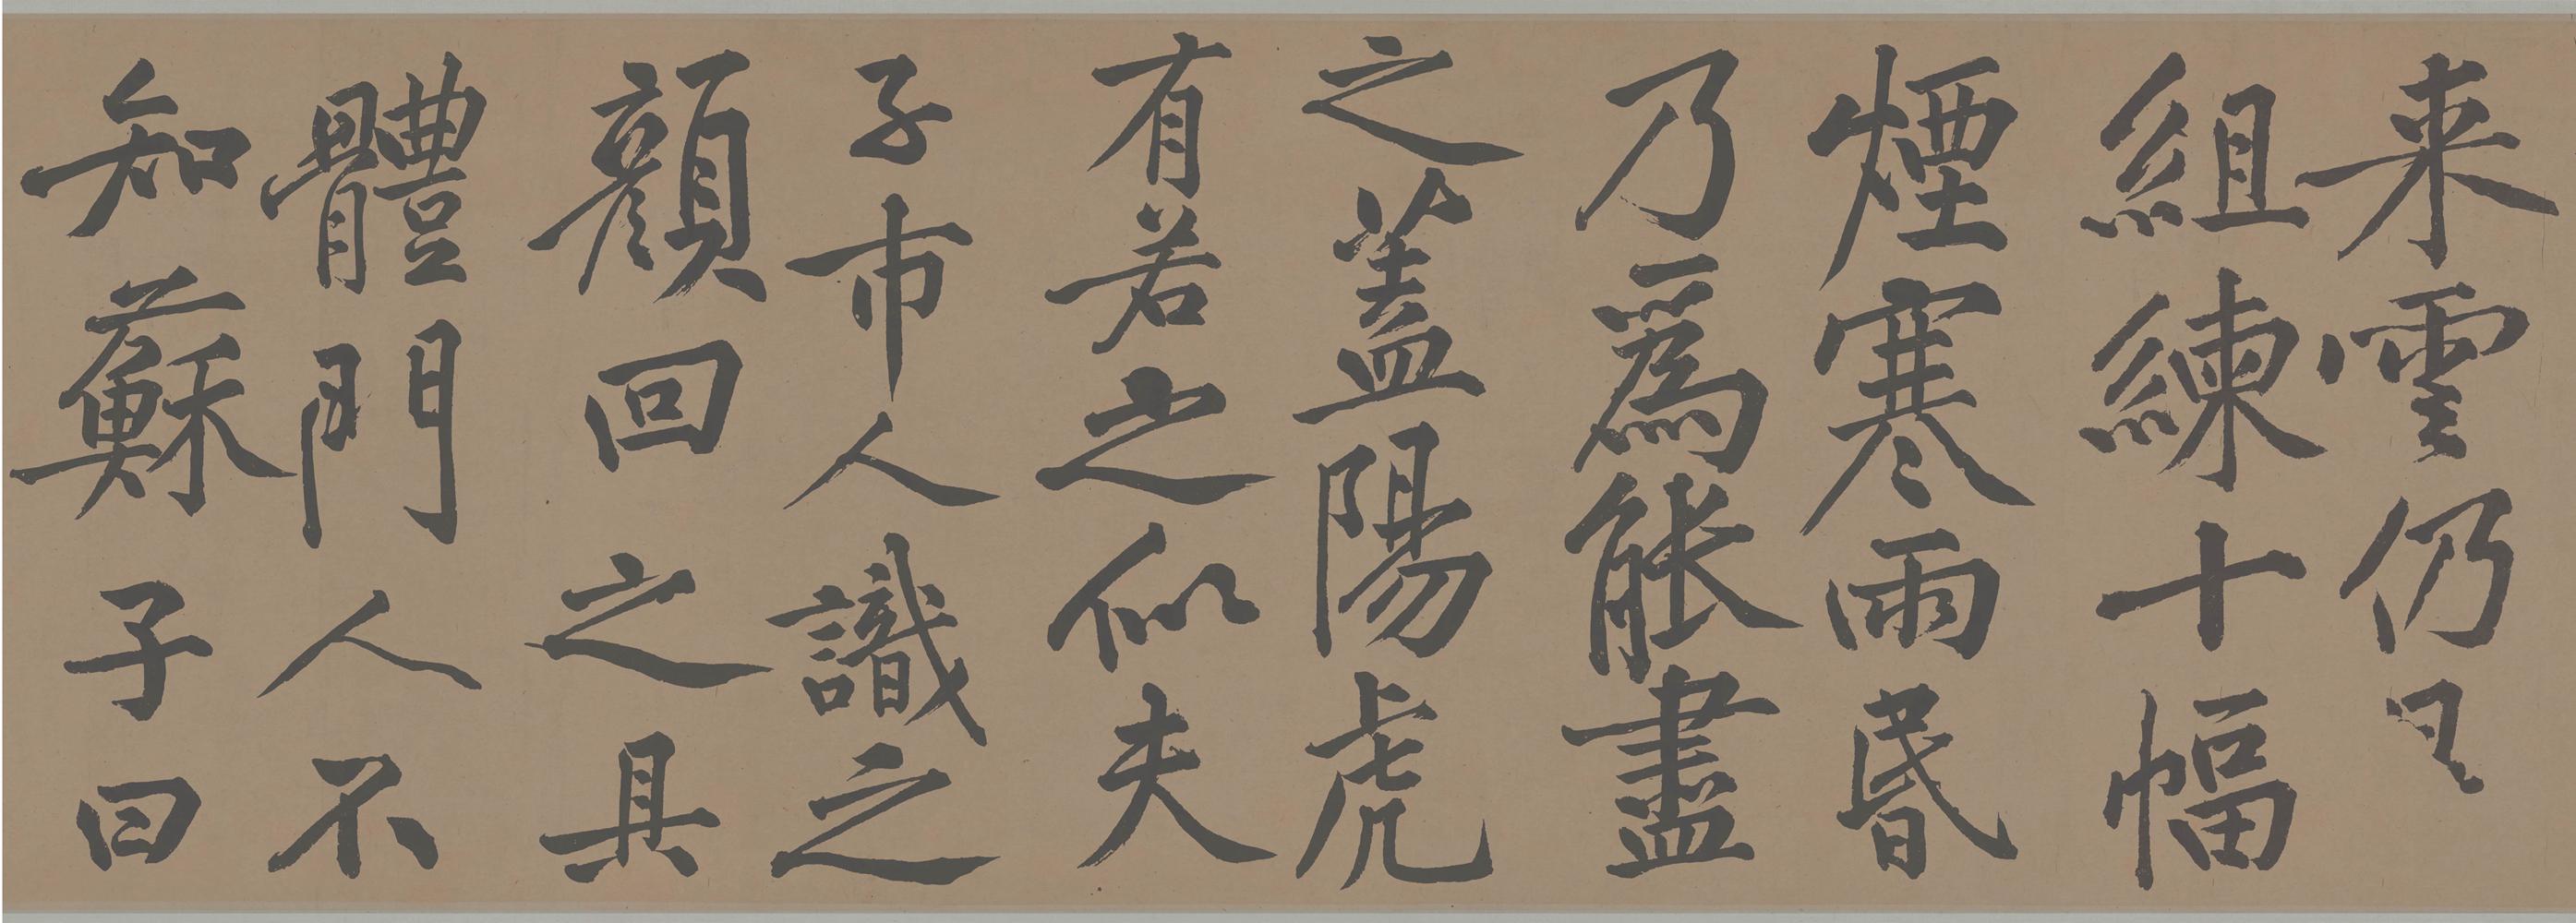 来雲仍只
組練十幅
煙寒雨昏
乃爲能盡
之蓋陽虎
有若之似夫
子市人識之
顏回之具
體門人不
知蘇子曰